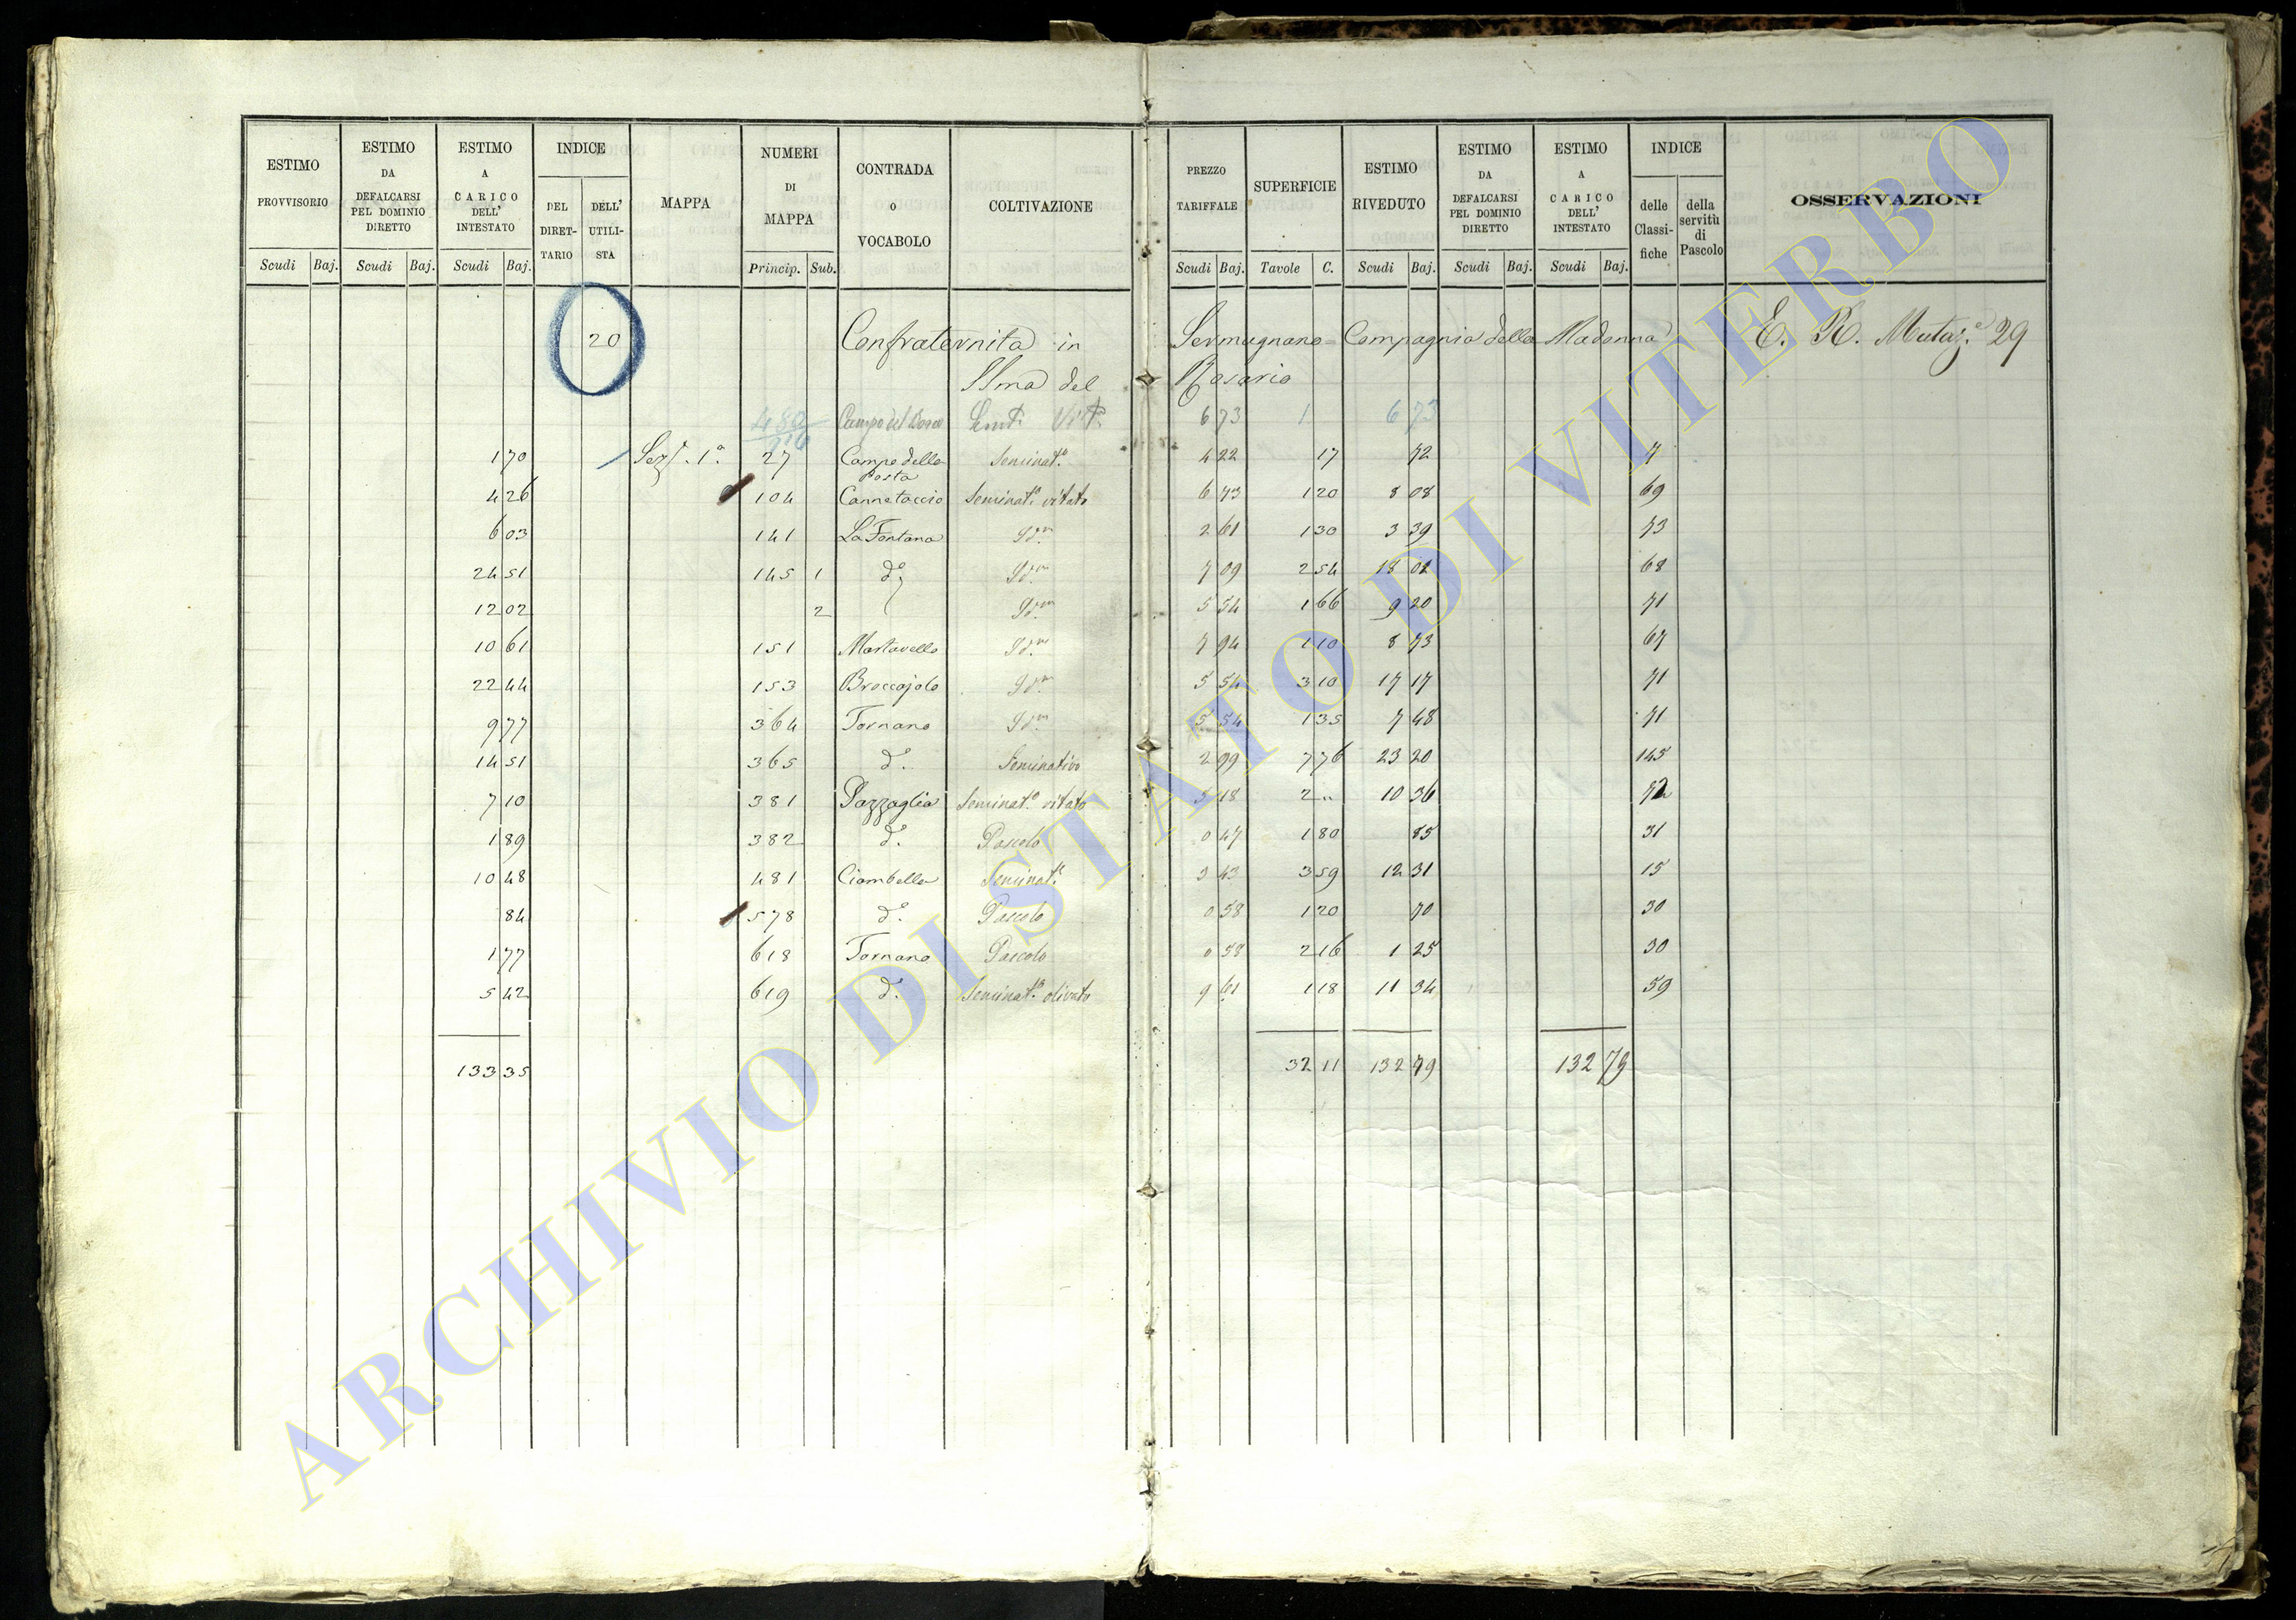 ESTIMO PROVVISORIO | ESTIMO DA DEFALCARSI PEL DOMINIO DIRETTO | ESTIMO A CARICO DELL' INTESTATO | INDICE | MAPPA | NUMERI DI MAPPA | CONTRADA O VOCABOLO | COLTIVAZIONE | PREZZO TARIFFALE | SUPERFICIE | ESTIMO RIVEDUTO | ESTIMO DA DEFALCARSI PEL DOMINIO DIRETTO | ESTIMO A CARICO DELL' INTESTATO | INDICE | OSSERVAZIONI
DEL DIRETTARIO | DELL' UTILISTA | delle Classifiche | della servitù di Pascolo
Scudi | Baj. | Scudi | Baj. | Scudi | Baj. | Princip. | Sub. | Scudi | Baj. | Tavole | C. | Scudi | Baj. | Scudi | Baj. | Scudi | Baj.
20 | Confraternita in Sermugnano = Compagnia della Madonna | E. R. Mutaz.e 29
SSma del Rosario
Campo del Bosco | Semt. Vitt. | 6 73 | 1 | 6 73
1 70 | Sez. 1a | 27 | Campo della Posta | Seminato | 4 22 | 17 | 72 | 7
4 26 | 104 | Cannetaccio | Seminat.o vitato | 6 73 | 1 20 | 8 08 | 69
6 03 | 141 | La Fontana | Idm | 2 61 | 1 30 | 3 39 | 73
24 51 | 145 | 1 | do | Idm | 7 09 | 2 54 | 18 01 | 68
12 02 | 2 | Idm | 5 54 | 1 66 | 9 20 | 71
10 61 | 151 | Martavello | Idm | 7 94 | 1 10 | 8 73 | 67
22 44 | 153 | Broccajolo | Idm | 5 54 | 3 10 | 17 17 | 71
9 77 | 364 | Tornano | Idm | 5 54 | 1 35 | 7 48 | 71
14 51 | 365 | do | Seminativo | 2 99 | 7 76 | 23 20 | 145
7 10 | 381 | Pazzaglia | Seminat.o vitato | 5 18 | 2 „ | 10 36 | 72
1 89 | 382 | do | Pascolo | 0 47 | 1 80 | 85 | 31
10 48 | 481 | Ciambella | Seminat.o | 3 43 | 3 59 | 12 31 | 15
84 | 578 | do | Pascolo | 0 58 | 1 20 | 70 | 30
1 77 | 618 | Tornano | Pascolo | 0 58 | 2 16 | 1 25 | 30
5 42 | 619 | do | Seminat.o olivato | 9 61 | 1 18 | 11 34 | 59
133 35 | 32 11 | 132 79 | 132 79
ARCHIVIO DI STATO DI VITERBO